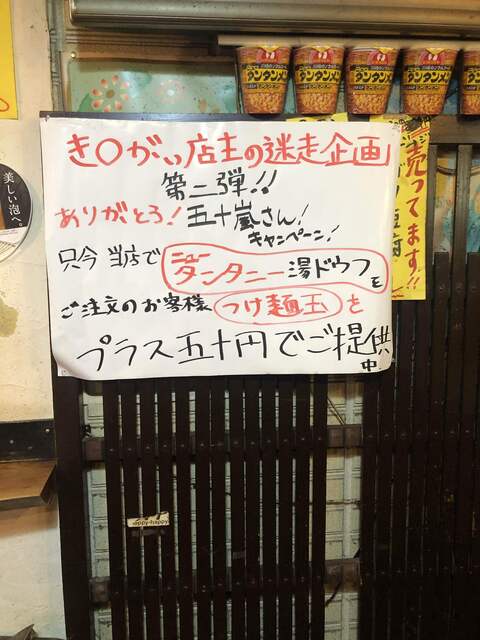 き〇がい店主の迷走企画
第二弾!!
ありがとう!五十嵐さん!
キャンペーン!
只今 当店で
ニュー
タンタニー湯ドウフを
ご注文のお客様 つけ麺玉を
プラス五十円でご提供
中
売ってます!!
美しい泡へ。
タンタンメン
タンタンメン
タンタンメン
タンタンメン
happy-happy